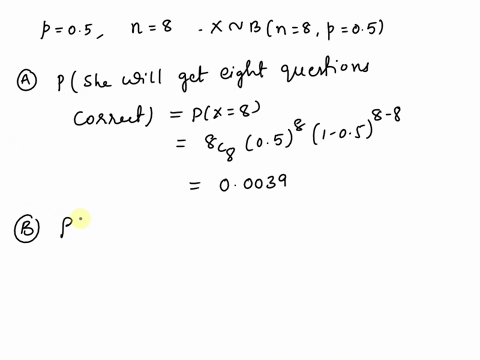 p = 0.5, n = 8 . X ~ B(n = 8, p = 0.5)
Ⓐ P(she will get eight questions
correct) = P(X = 8)
= 8C8 (0.5)^8 (1-0.5)^8-8
= 0.0039
Ⓑ P